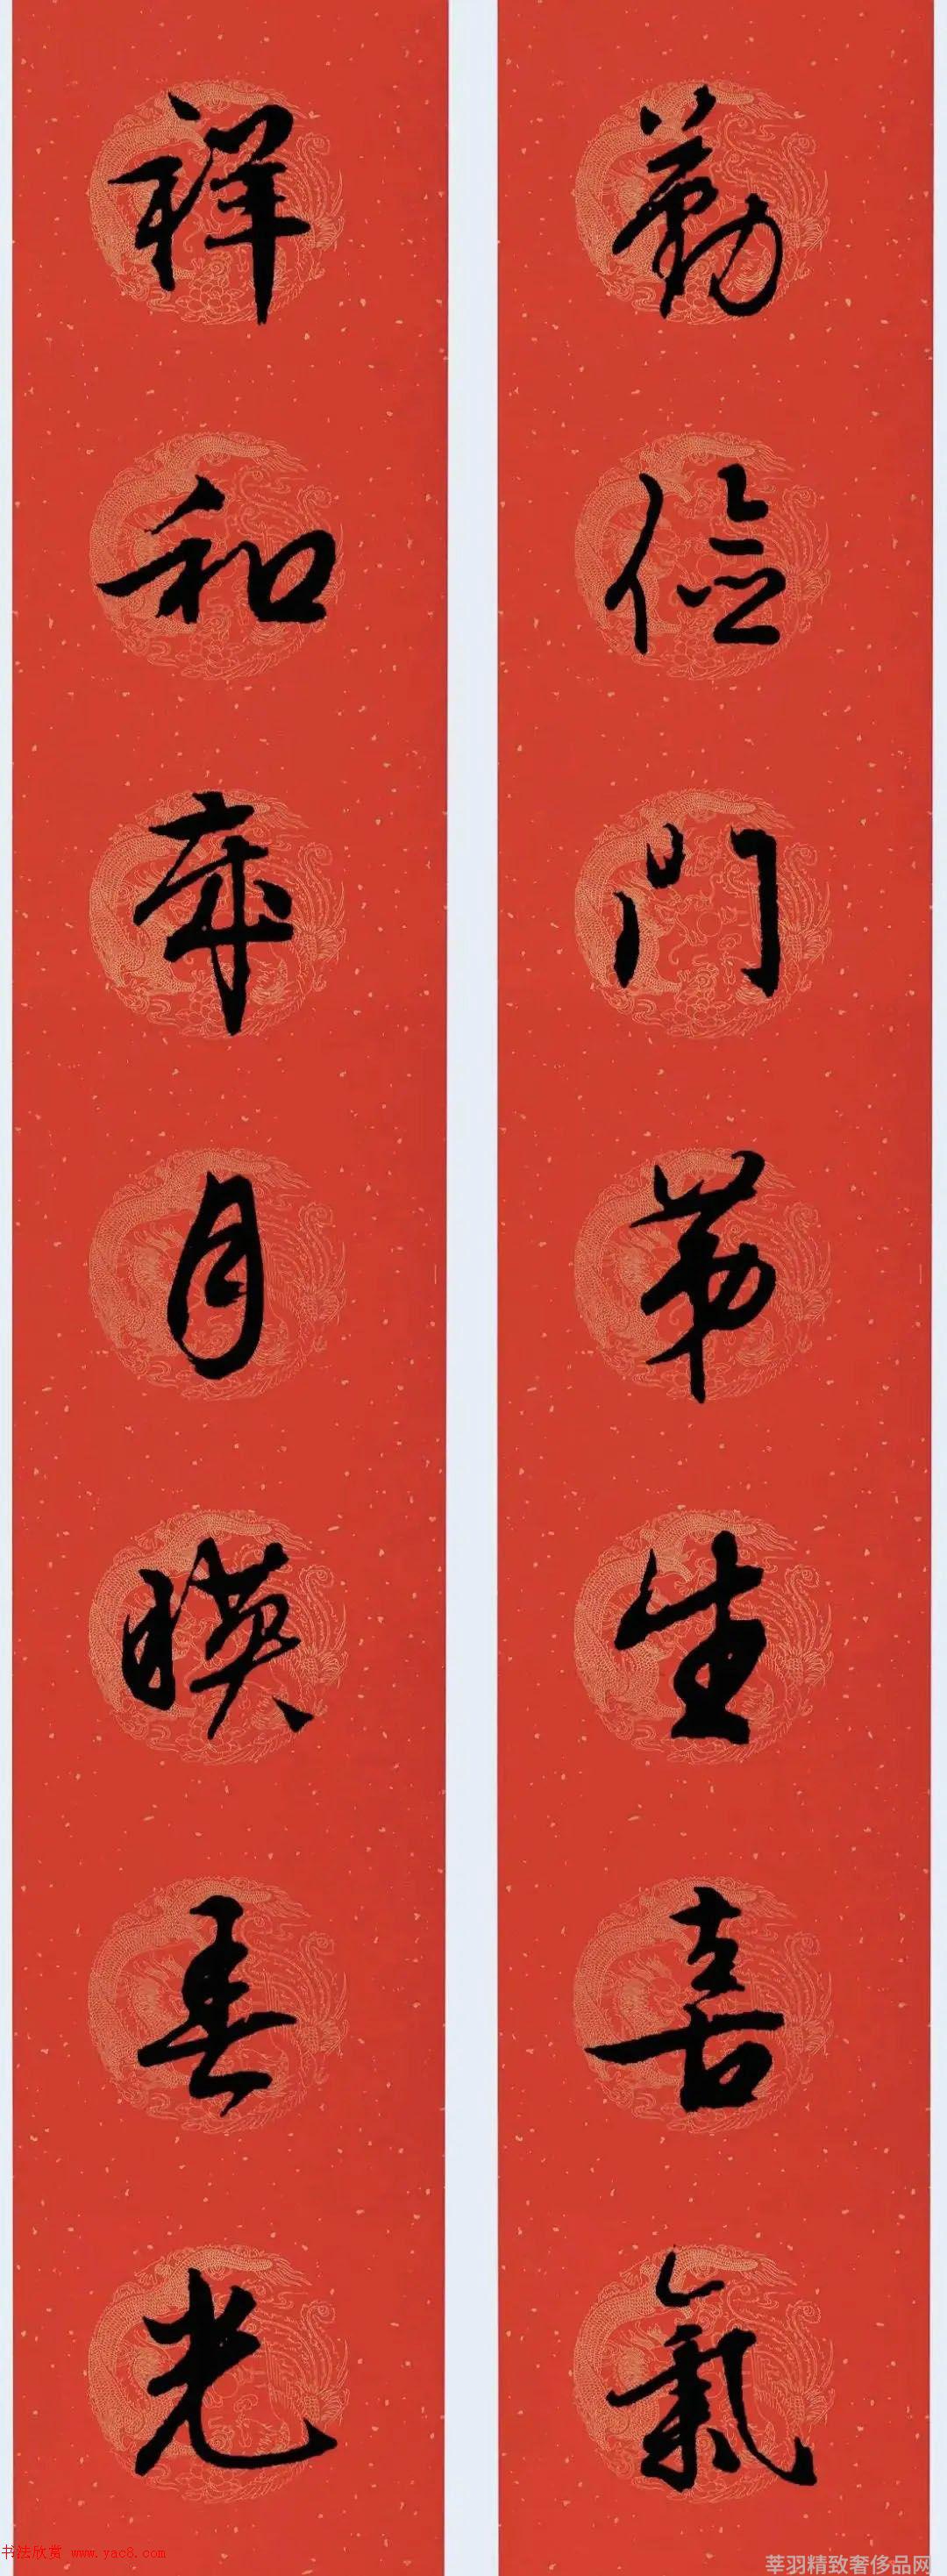 勤儉門第生喜氣
祥和歲月映春光
书法欣赏 www.yac8.com
莘羽精致奢侈品网